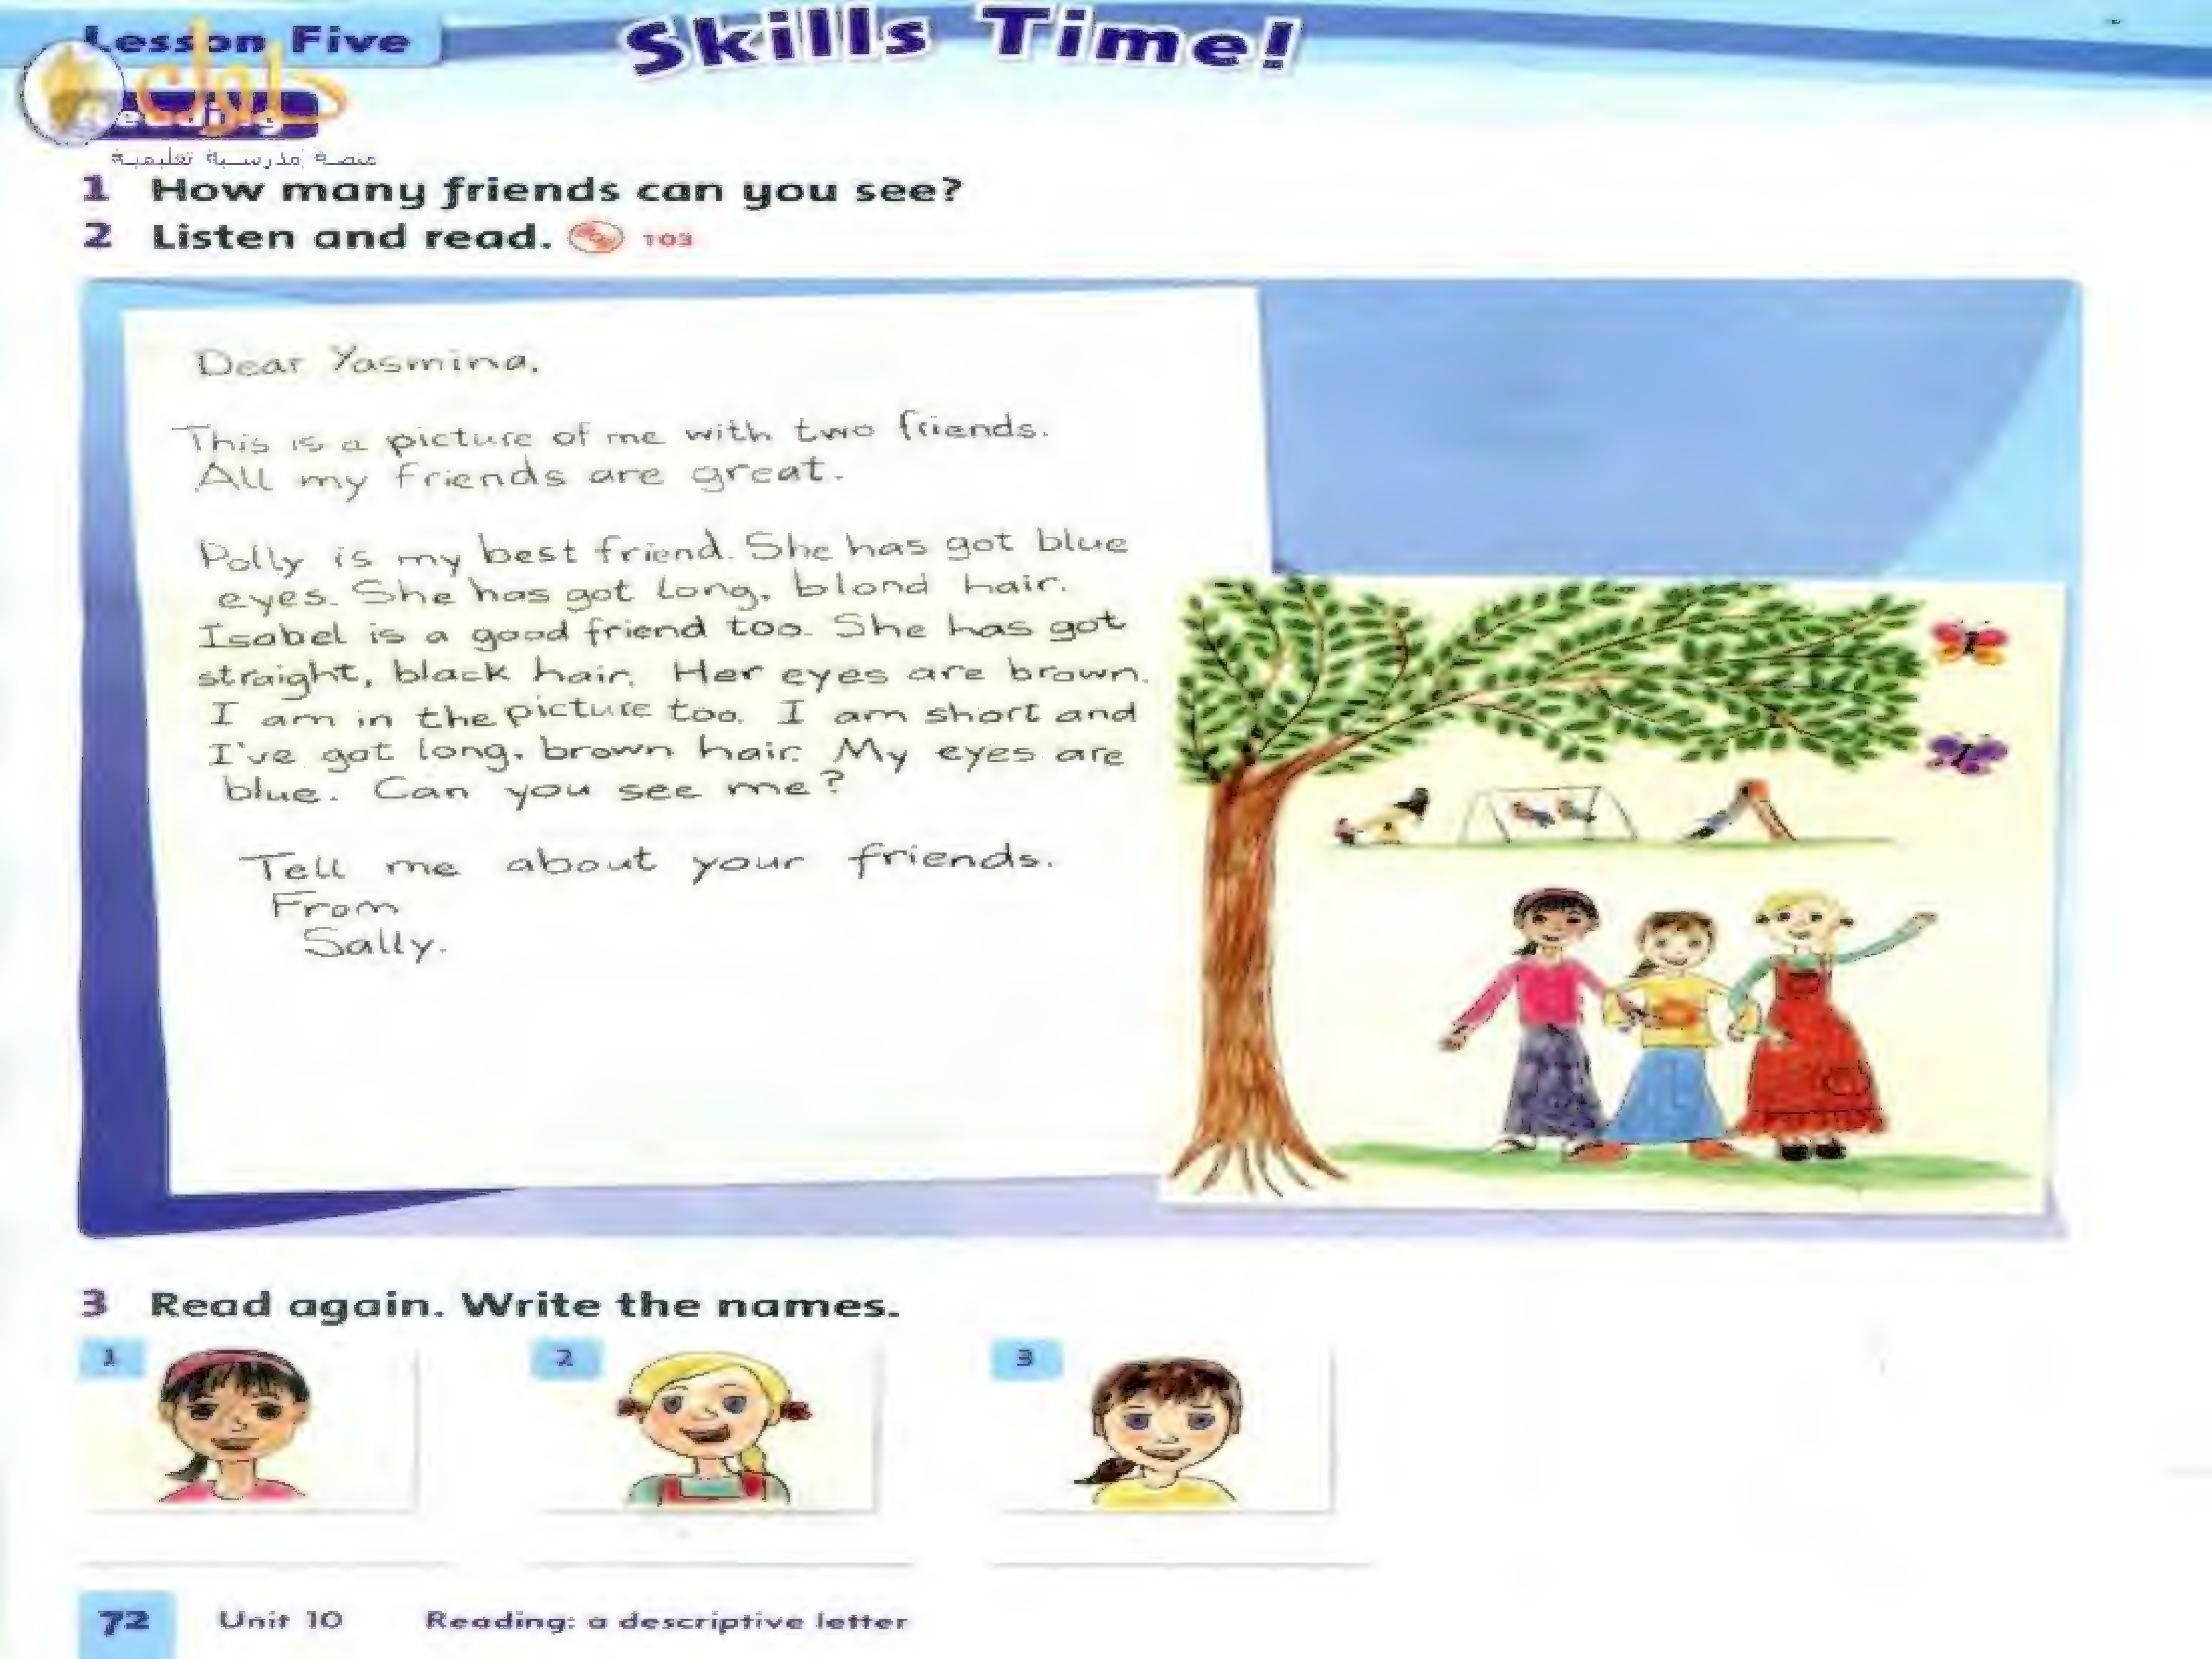 Lesson Five
Skills Time!
حلول
Reading
منصة مدرسية تعليمية
1 How many friends can you see?
2 Listen and read. 103
Dear Yasmina,
This is a picture of me with two friends.
All my friends are great.
Polly is my best friend. She has got blue
eyes. She has got long, blond hair.
Isabel is a good friend too. She has got
straight, black hair. Her eyes are brown.
I am in the picture too. I am short and
I've got long, brown hair. My eyes are
blue. Can you see me?
Tell me about your friends.
From
Sally.
3 Read again. Write the names.
1
2
3
72 Unit 10 Reading: a descriptive letter